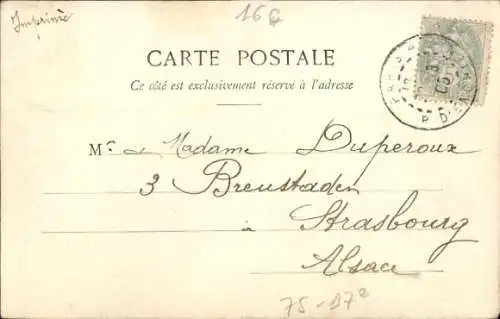 Imprimé
166
CARTE POSTALE
Ce côté est exclusivement réservé à l'adresse
Mr et Madame Duperoux
3 Breustaden
à Strasbourg
Alsace
75-17e